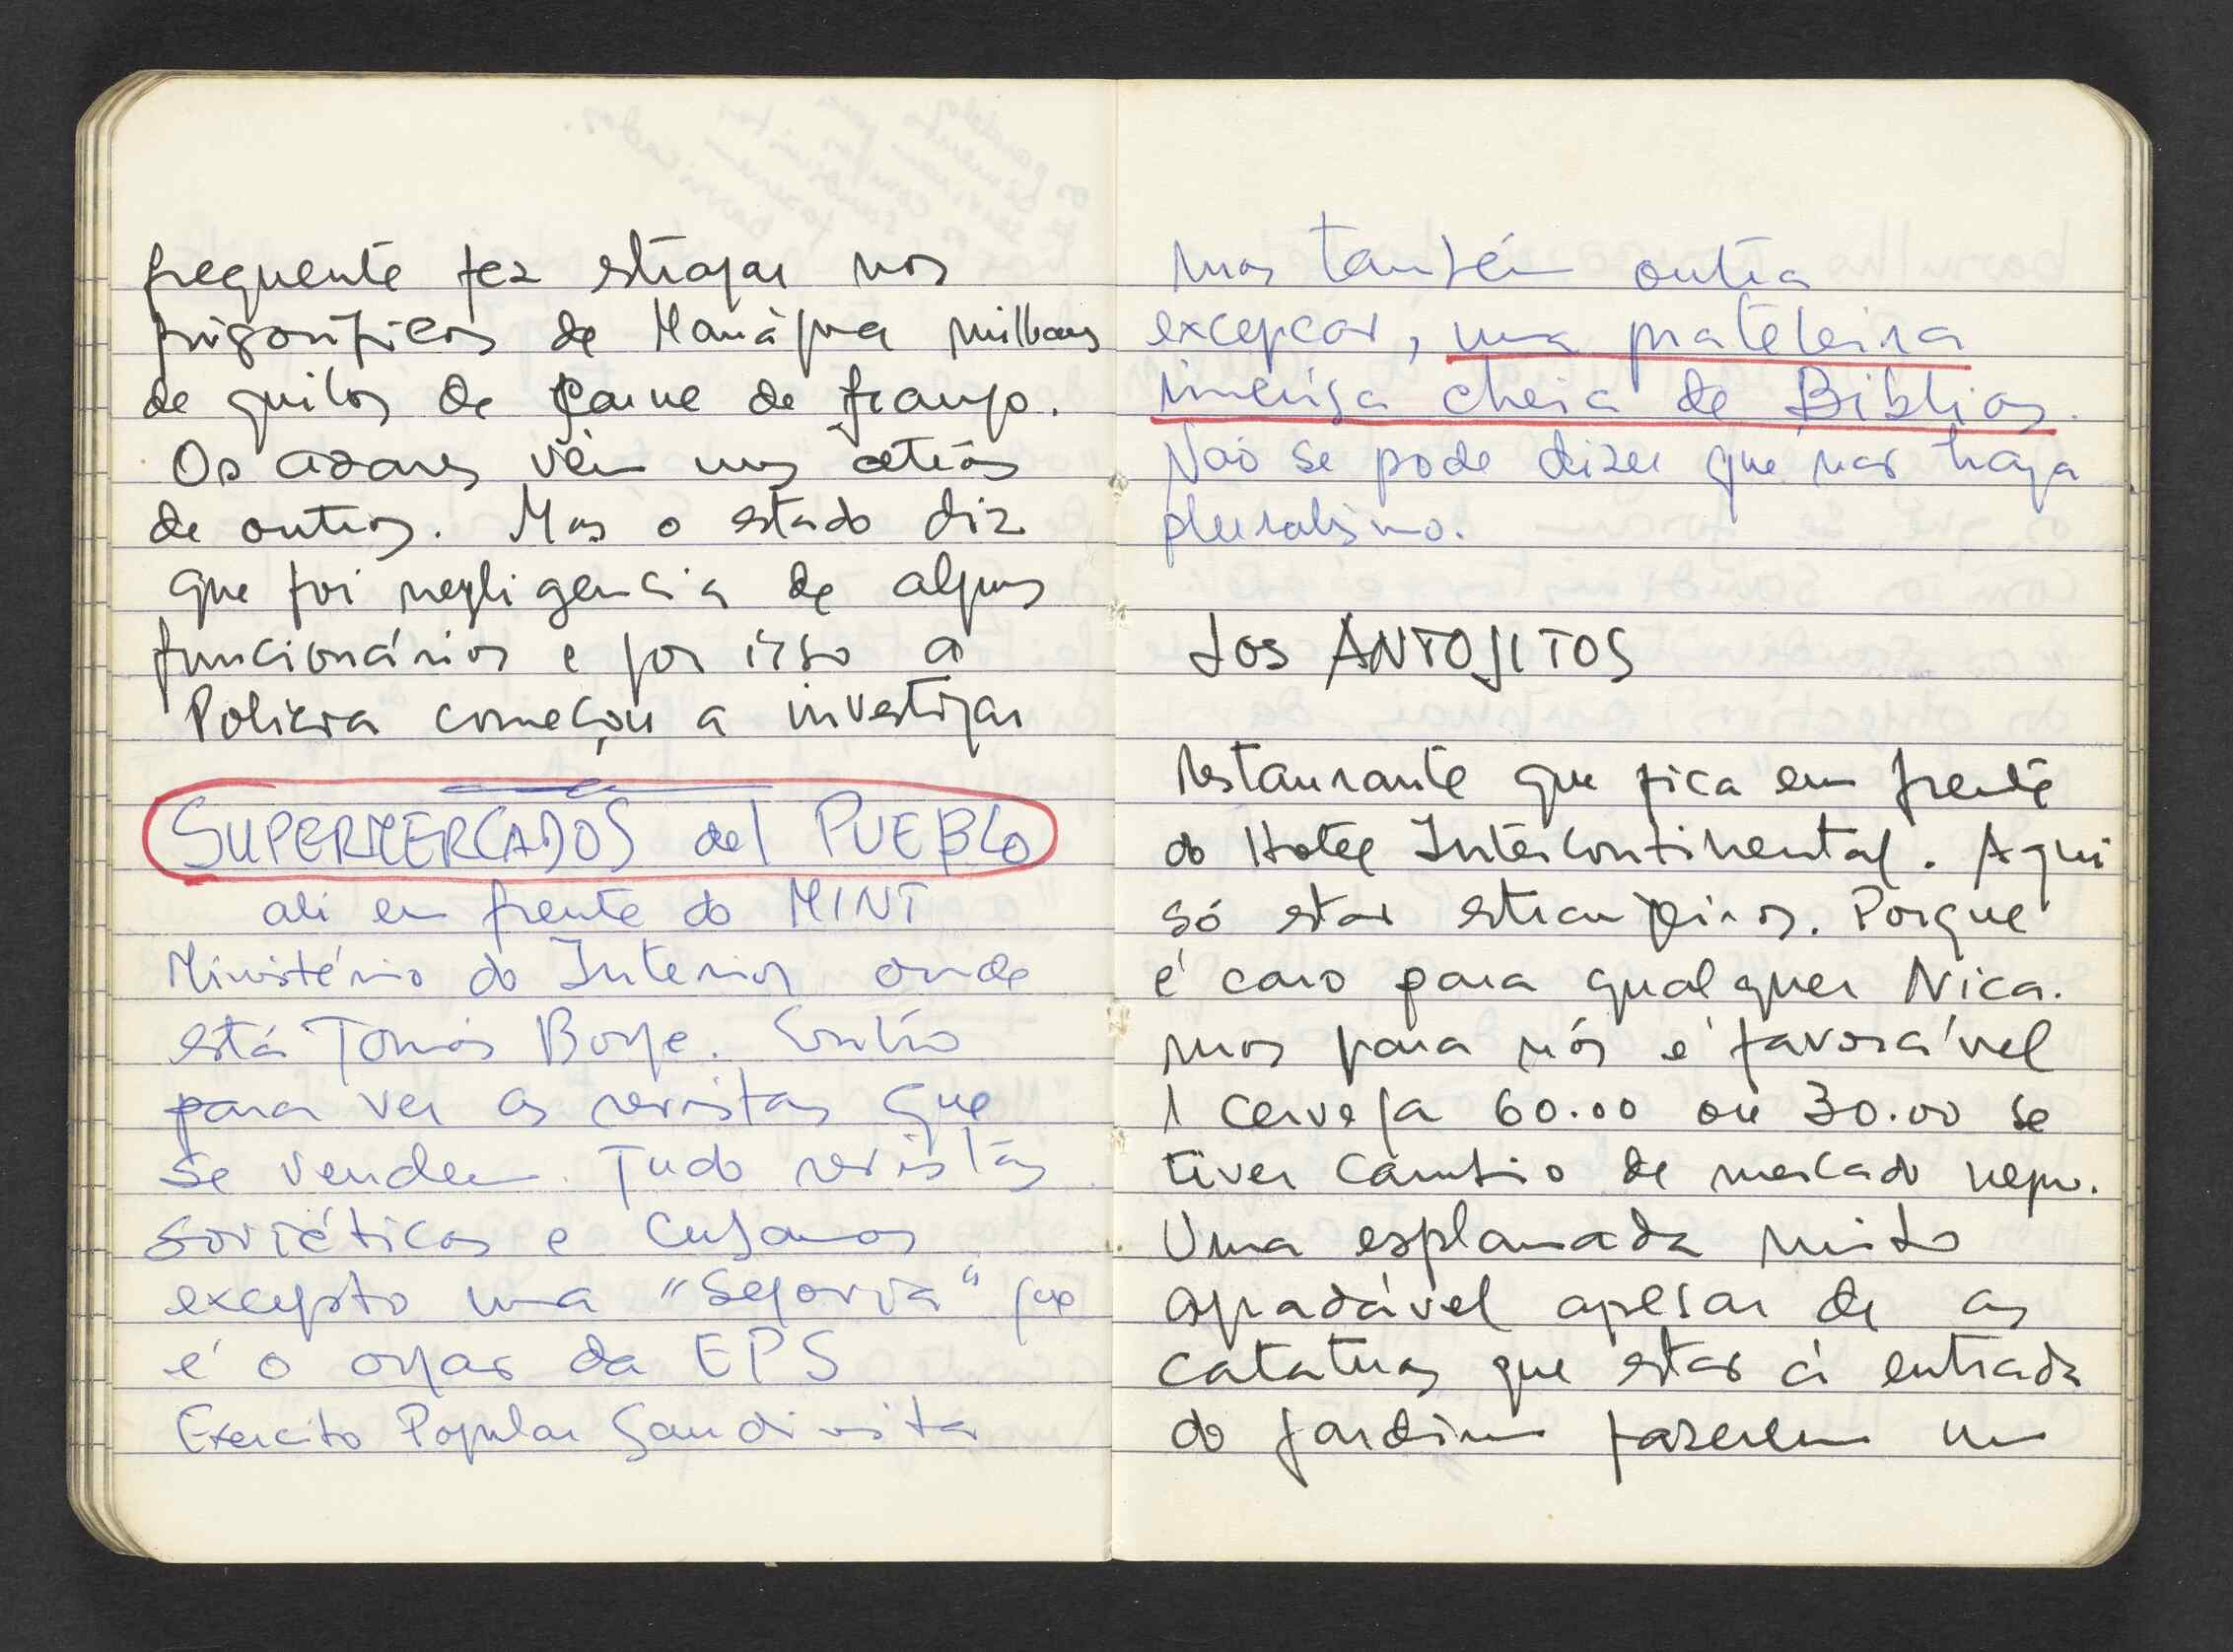 frequente fez estragar nos
frigoríficos de Manágua milhares
de quilos de carne de frango.
Os azares vêm uns atrás
de outros. Mas o estado diz
que foi negligencia de alguns
funcionários e por isso a
Policia começou a investigar
SUPERMERCADOS del PUEBLO
ali em frente do MINT
Ministério do Interior onde
está Tomás Borge. Entrío
para ver as revistas que
se vendem. Tudo revistas
soviéticas e cubanas
excepto uma "Segovia" que
é o orgão da EPS
Exercito Popular Sandinista
mas também outra
excepção, uma prateleira
imensa cheia de Biblias.
Não se pode dizer que não haja
pluralismo.
LOS ANTOJITOS
Restaurante que fica em frente
do Hotel Intercontinental. Aqui
só estão estrangeiros. Porque
é caro para qualquer Nica.
mas para nós é favorável
1 cerveja 60.00 ou 30.00 se
tiver câmbio de mercado negro.
Uma esplanada muito
agradável apesar de as
catatuas que estão à entrada
do jardim fazerem um